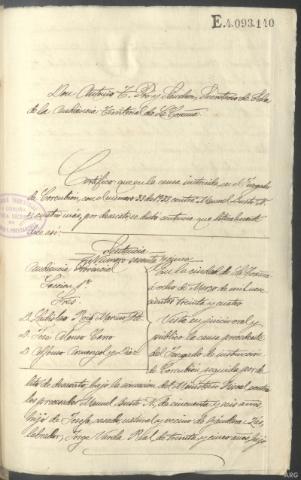 E.4.093.140
Don Antonio T. Rey Sanchez, Secretario de Sala
de la Audiencia Territorial de La Coruña
Certifico: que en la causa instruida en el Juzgado
de Corcubion, con el número 33 de 1933 contra Manuel Insua A.
y cuatro mas, por desacato se dictó sentencia que literalmente
dice así:
Sentencia
Número sesenta y
Audiencia Provincial
Sección 1ª
Sres.
D.
D. José Alonso Cano
D. Alfonso
En la ciudad de La Coruña
a ocho de Marzo de mil nove-
cientos treinta y cuatro
Vista en juicio oral y
público la causa procedente
del Juzgado de instrucción
de Corcubion seguida por de-
lito de desacato, bajo la acusación del Ministerio Fiscal contra
los procesados Manuel Insua A. de cincuenta y seis años
hijo de Josefa, casado, natural y vecino de
labrador, Jorge Varela Rial de treinta y cinco años, hijo
ARG